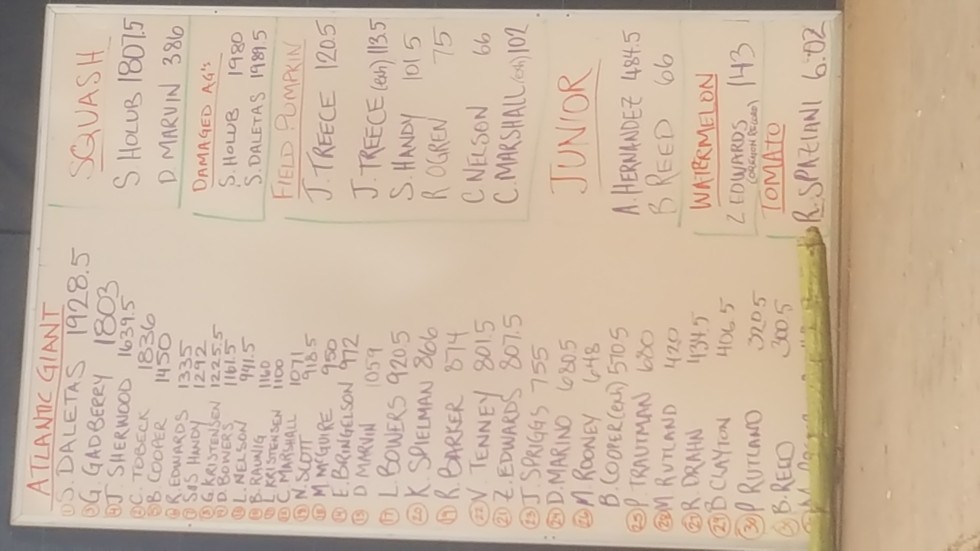 ATLANTIC GIANT
① S. DALETAS 1928.5
③ G GADBERRY 1803
④ J SHERWOOD 1639.5
② C. TOBECK 1836
⑤ B COOPER 1450
⑥ R. EDWARDS 1335
⑦ S&S HANDY 1292
⑧ G. KRISTENSEN 1225.5
D. BOWERS 1161.5
L. NELSON 941.5
B. RAUNIG 1160
L KRISTENSEN 1100
C MARSHALL 1071
N. SCOTT 918.5
M MCGUIRE 950
E. BRINGELSON 972
D MARVIN 1059
⑰ L. BOWERS 920.5
⑳ K. SPIELMAN 866
⑲ R. BARKER 874
㉒ V. TENNEY 801.5
㉑ Z. EDWARDS 807.5
㉓ J. SPRIGGS 755
㉔ D. MARINO 680.5
㉖ M ROONEY 648
B. COOPER (exh) 570.5
㉕ P TRAUTMAN 680
㉘ M RUTLAND 420
㉗ R. DRAHN 434.5
㉙ B CLAYTON 406.5
㉚ P RUTLAND 320.5
㉛ B. REED 300.5
SQUASH
S HOLUB 1807.5
D MARVIN 386
DAMAGED AG's
S. HOLUB 1980
S. DALETAS 1989.5
FIELD PUMPKIN
J. TREECE 120.5
J. TREECE (exh) 113.5
S. HANDY 101.5
R OGREN 75
C NELSON 66
C. MARSHALL (exh) 102
JUNIOR
A. HERNANDEZ 484.5
B REED 66
WATERMELON
Z EDWARDS 143
(OREGON RECORD)
TOMATO
R. SPAZIANI 6.02